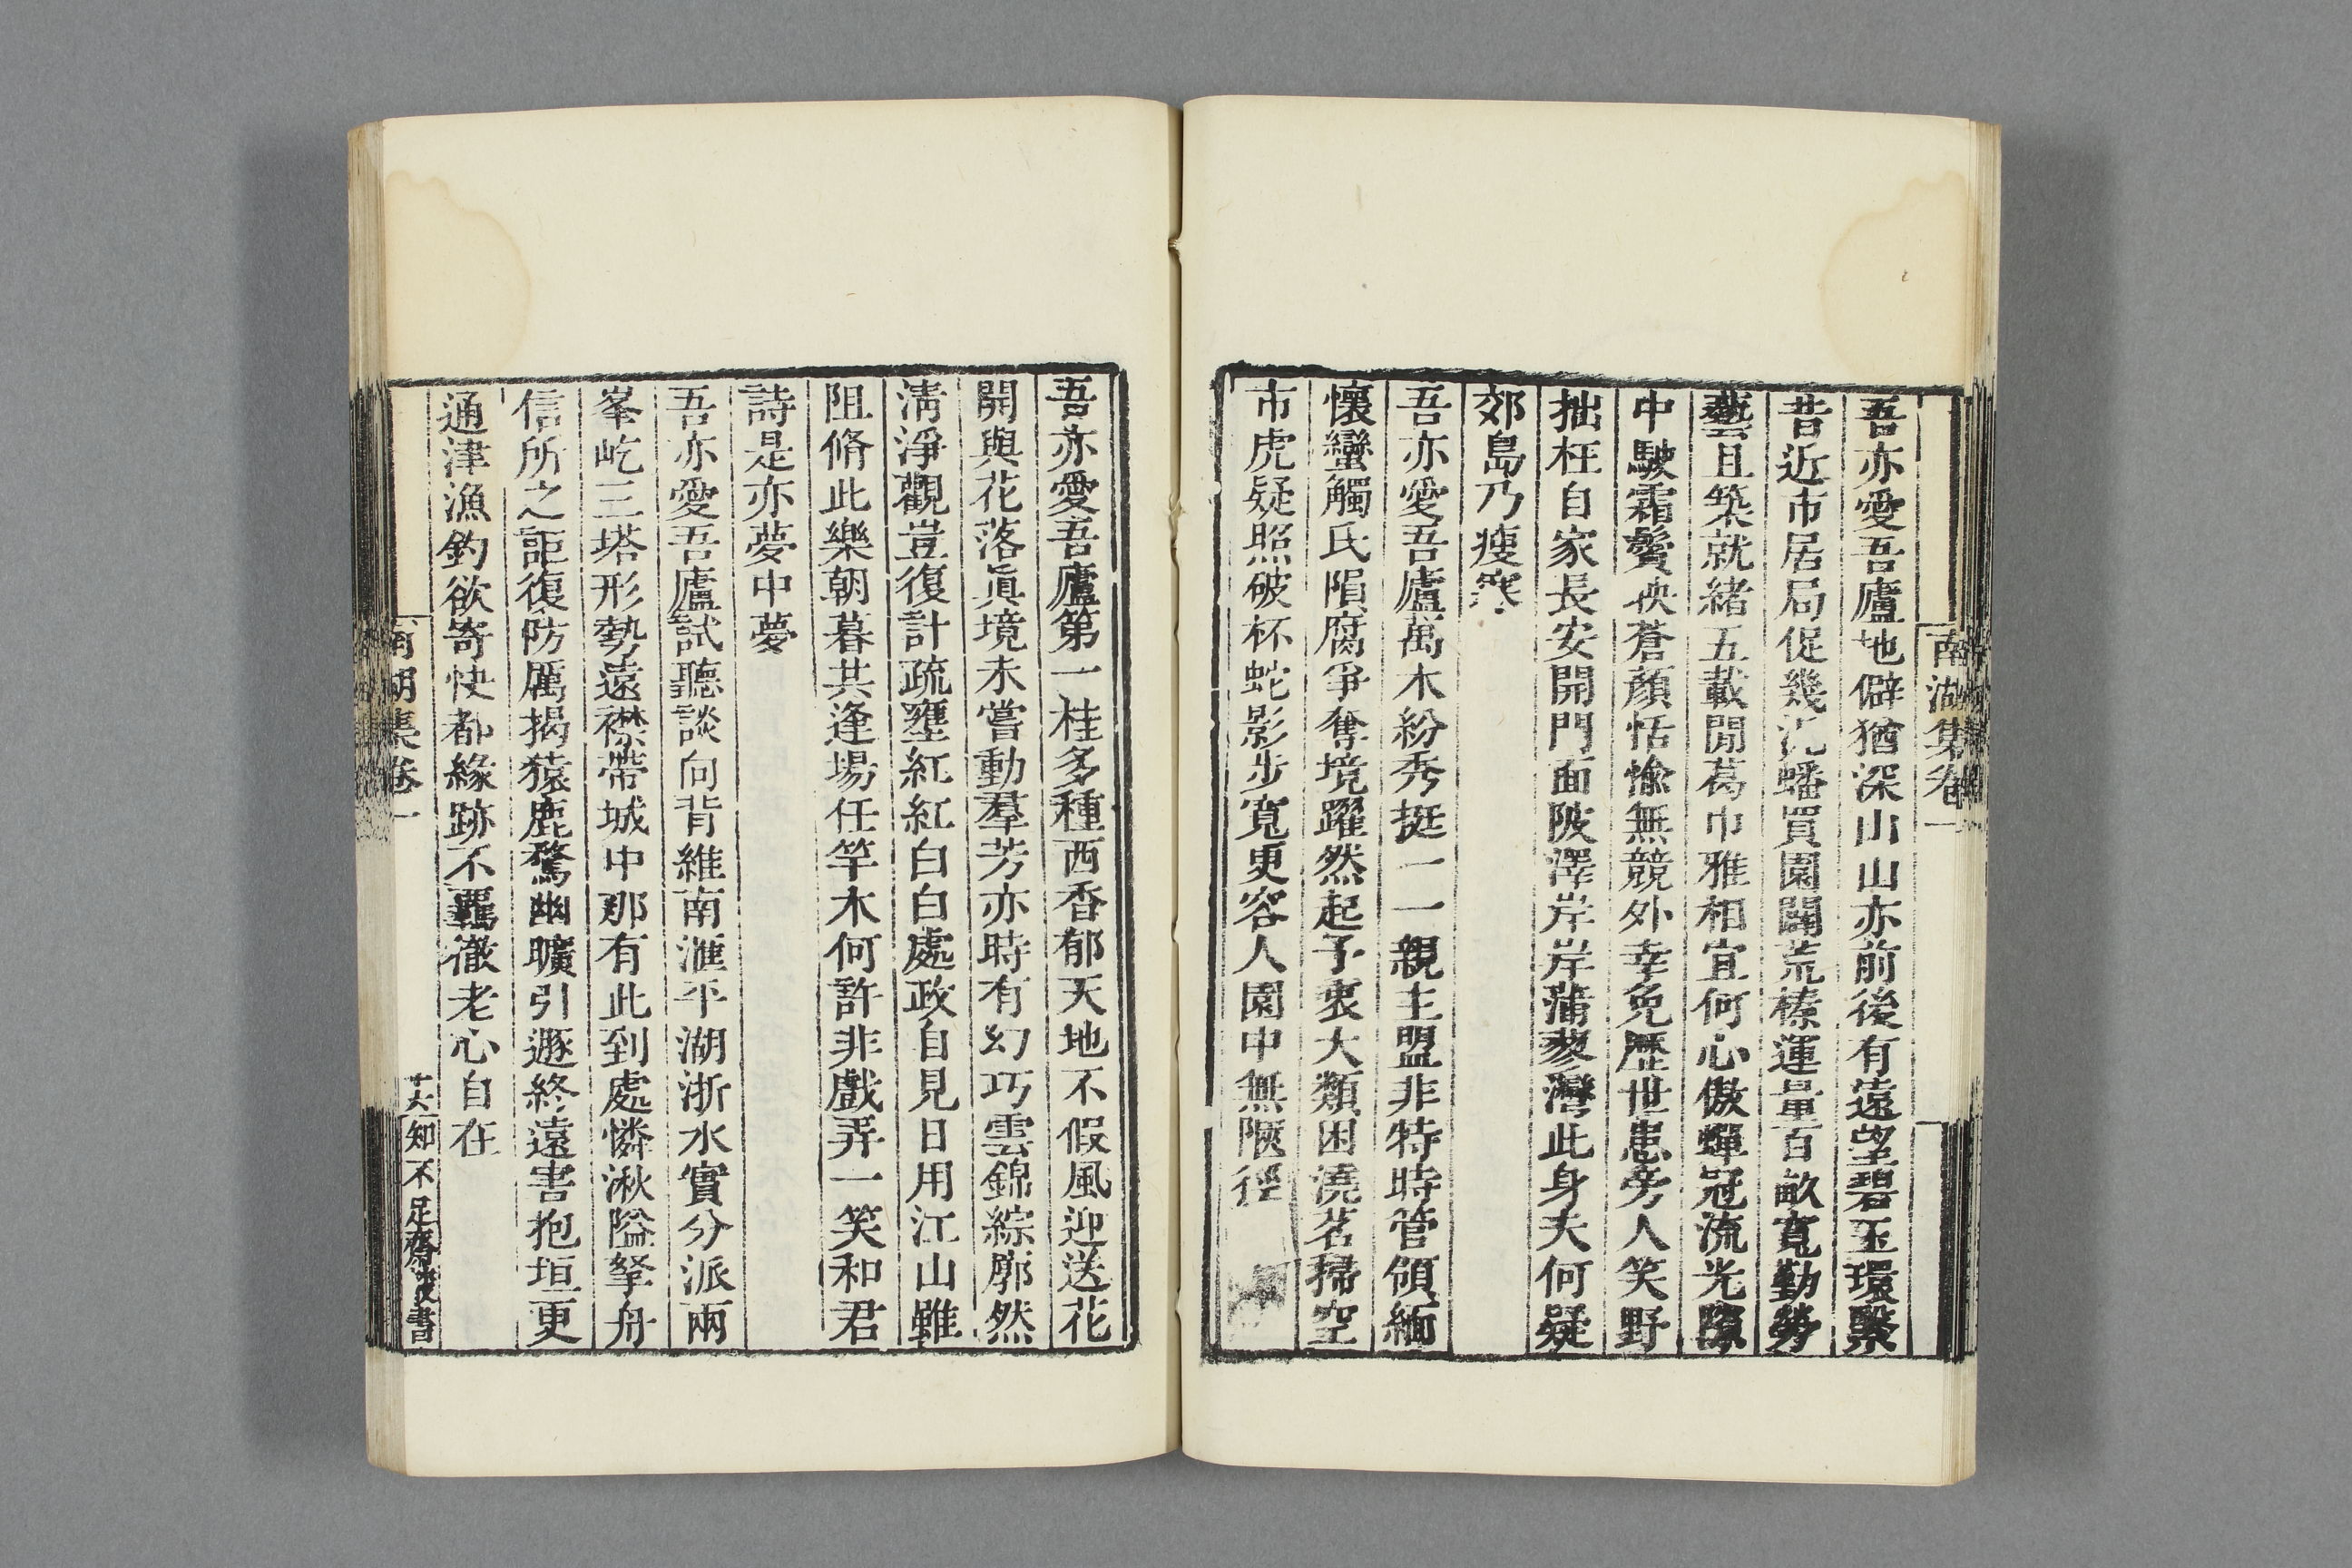 南湖集卷一
吾亦愛吾廬地僻猶深山山亦前後有遠望碧玉環繄
昔近市居局促幾沉蟠買園闢荒榛運量百畝寬勤勞
藝且築就緒五載閒葛巾雅相宜何心傲蟬冠流光隙
中駛霜鬢映蒼顏恬愉無競外幸免歷世患旁人笑野
拙枉自家長安開門面陂澤岸岸蒲蓼灣此身夫何疑
郊島乃瘦寒
吾亦愛吾廬萬木紛秀挺一一親主盟非特時管領緬
懷蠻觸氏隕腐爭奪境躍然起予衷大類困澆茗掃空
市虎疑照破杯蛇影步寬更容人園中無陿徑
吾亦愛吾廬第一桂多種西香郁天地不假風迎送花
開與花落眞境未嘗動羣芳亦時有幻巧雲錦綜廓然
淸淨觀豈復計疏壅紅紅白白處政自見日用江山雖
阻脩此樂朝暮共逢場任竿木何許非戲弄一笑和君
詩是亦夢中夢
吾亦愛吾廬試聽談向背維南滙平湖浙水實分派兩
峯屹三塔形勢遠襟帶城中那有此到處憐湫隘拏舟
信所之詎復防厲揭猿鹿騖幽曠引遯終遠害抱垣更
通津漁釣欲寄快都緣跡不羈徹老心自在
南湖集卷一
十六
知不足齋叢書